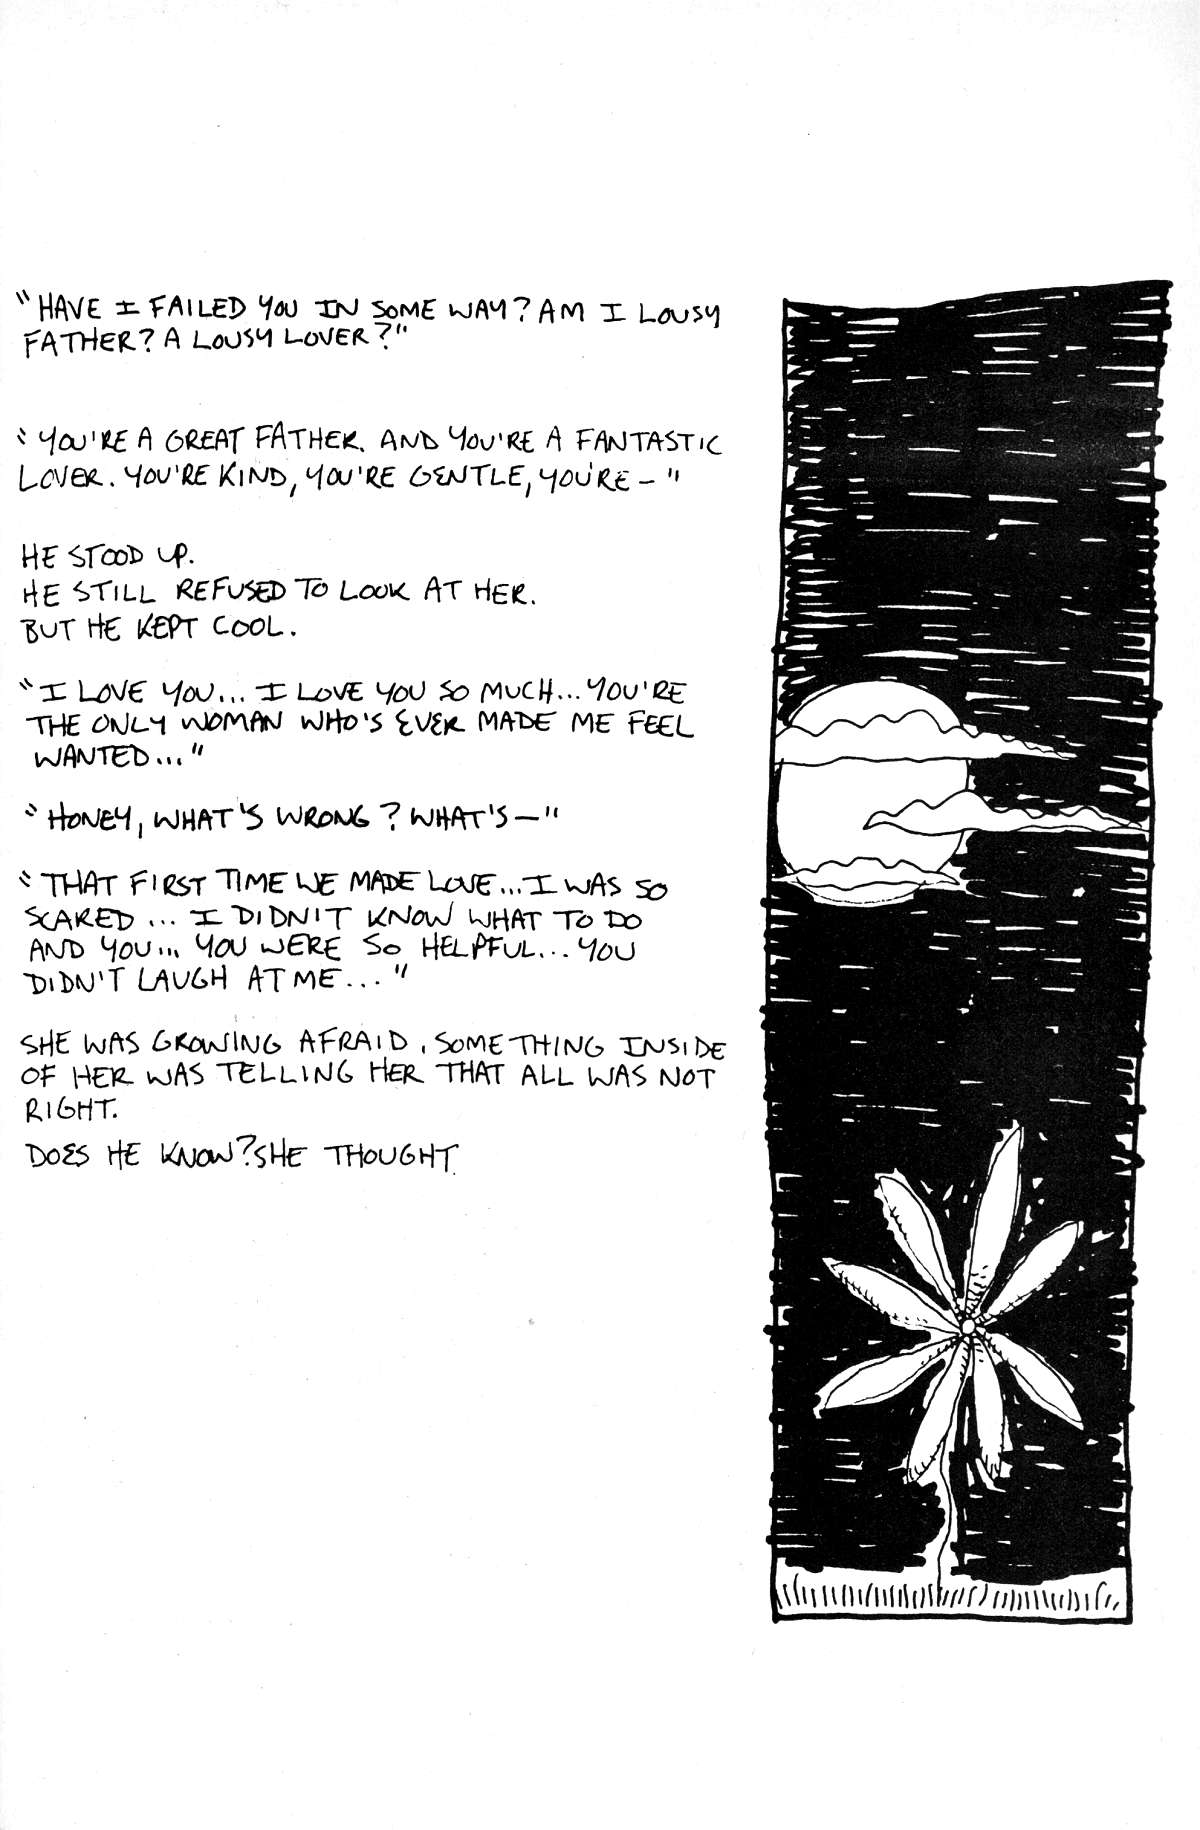 "HAVE I FAILED YOU IN SOME WAY? AM I LOUSY
FATHER? A LOUSY LOVER?"
"YOU'RE A GREAT FATHER. AND YOU'RE A FANTASTIC
LOVER. YOU'RE KIND, YOU'RE GENTLE, YOU'RE – "
HE STOOD UP.
HE STILL REFUSED TO LOOK AT HER.
BUT HE KEPT COOL.
"I LOVE YOU... I LOVE YOU SO MUCH... YOU'RE
THE ONLY WOMAN WHO'S EVER MADE ME FEEL
WANTED..."
"HONEY, WHAT'S WRONG? WHAT'S – "
"THAT FIRST TIME WE MADE LOVE... I WAS SO
SCARED ... I DIDN'T KNOW WHAT TO DO
AND YOU... YOU WERE SO HELPFUL... YOU
DIDN'T LAUGH AT ME ..."
SHE WAS GROWING AFRAID. SOMETHING INSIDE
OF HER WAS TELLING HER THAT ALL WAS NOT
RIGHT.
DOES HE KNOW? SHE THOUGHT.